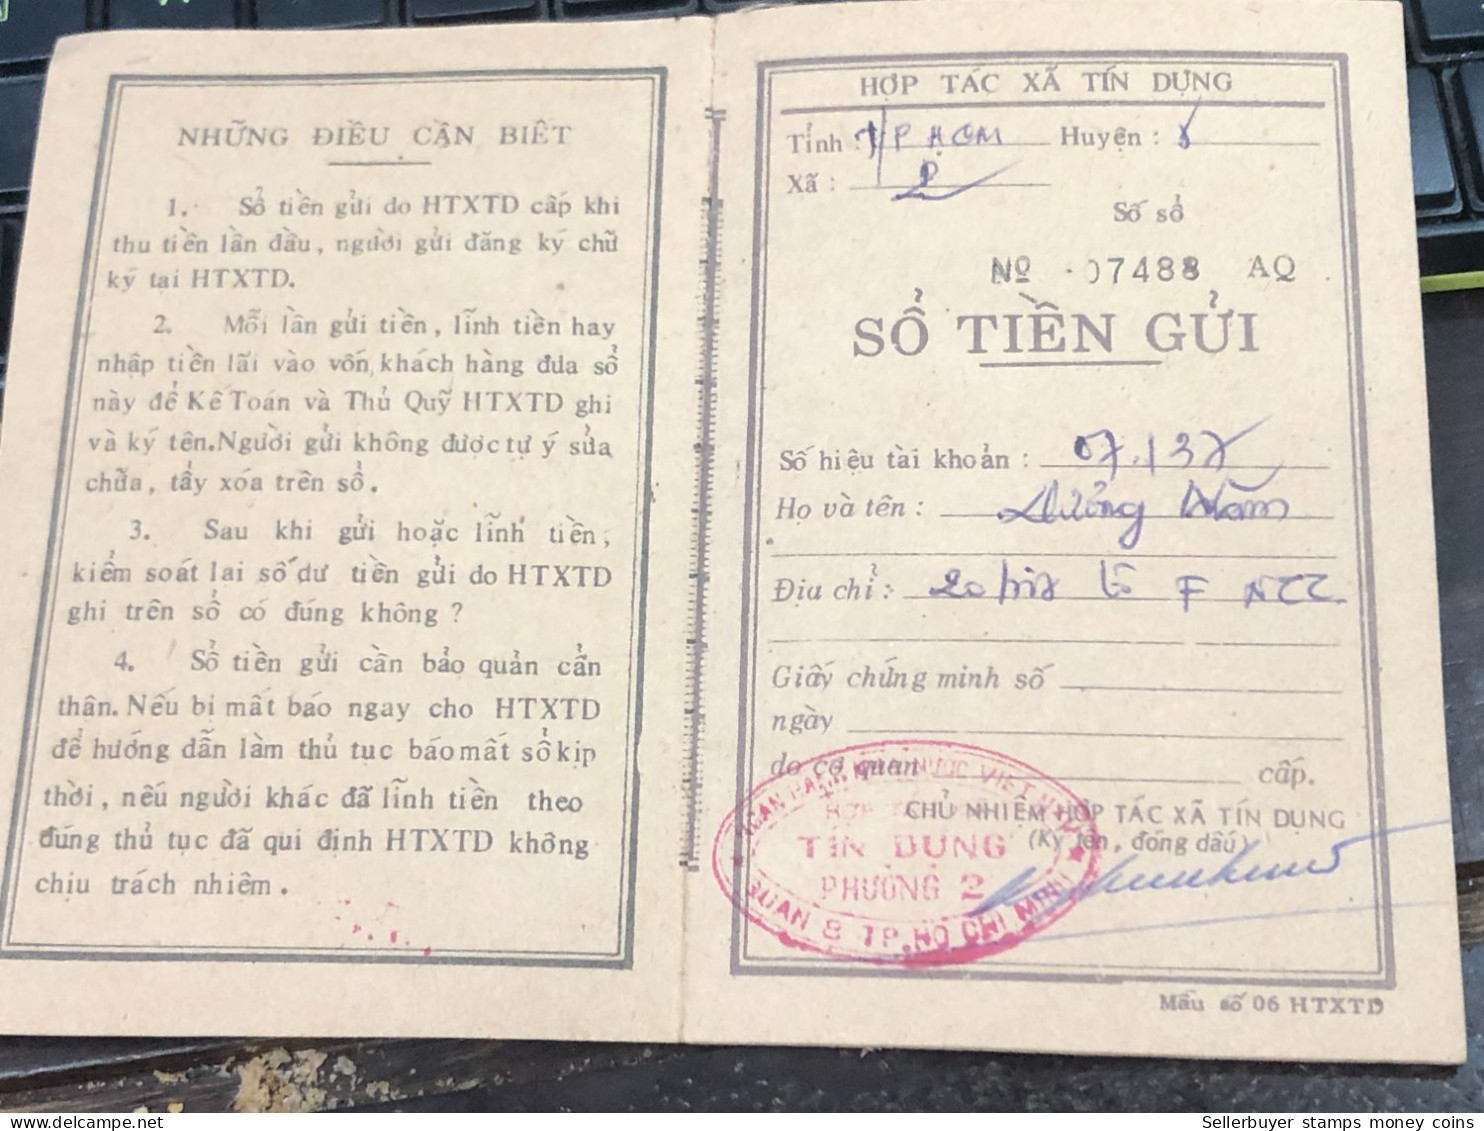 NHỮNG ĐIỀU CẦN BIẾT
1. Sổ tiền gửi do HTXTD cấp khi
thu tiền lần đầu, người gửi đăng ký chữ
ký tại HTXTD.
2. Mỗi lần gửi tiền, lĩnh tiền hay
nhập tiền lãi vào vốn, khách hàng đưa sổ
này để Kế Toán và Thủ Quỹ HTXTD ghi
và ký tên. Người gửi không được tự ý sửa
chữa, tẩy xóa trên sổ.
3. Sau khi gửi hoặc lĩnh tiền,
kiểm soát lại số dư tiền gửi do HTXTD
ghi trên sổ có đúng không ?
4. Sổ tiền gửi cần bảo quản cẩn
thận. Nếu bị mất báo ngay cho HTXTD
để hướng dẫn làm thủ tục báo mất sổ kịp
thời, nếu người khác đã lĩnh tiền theo
đúng thủ tục đã qui định HTXTD không
chịu trách nhiệm.
HỢP TÁC XÃ TÍN DỤNG
Tỉnh : TP HCM Huyện : 8
Xã : P2
Số sổ
Nº 07488 AQ
SỔ TIỀN GỬI
Số hiệu tài khoản : 07.137
Họ và tên : Năm
Địa chỉ : 20 F
Giấy chứng minh số
ngày
do cơ quan cấp.
CHỦ NHIỆM HỢP TÁC XÃ TÍN DỤNG
(Ký tên, đóng dấu)
NGÂN HÀNG NHÀ NƯỚC VIỆT NAM
HỢP TÁC XÃ
TÍN DỤNG
PHƯỜNG 2
QUẬN 8 TP. HỒ CHÍ MINH
Mẫu số 06 HTXTD
Sellerbuyer stamps money coins